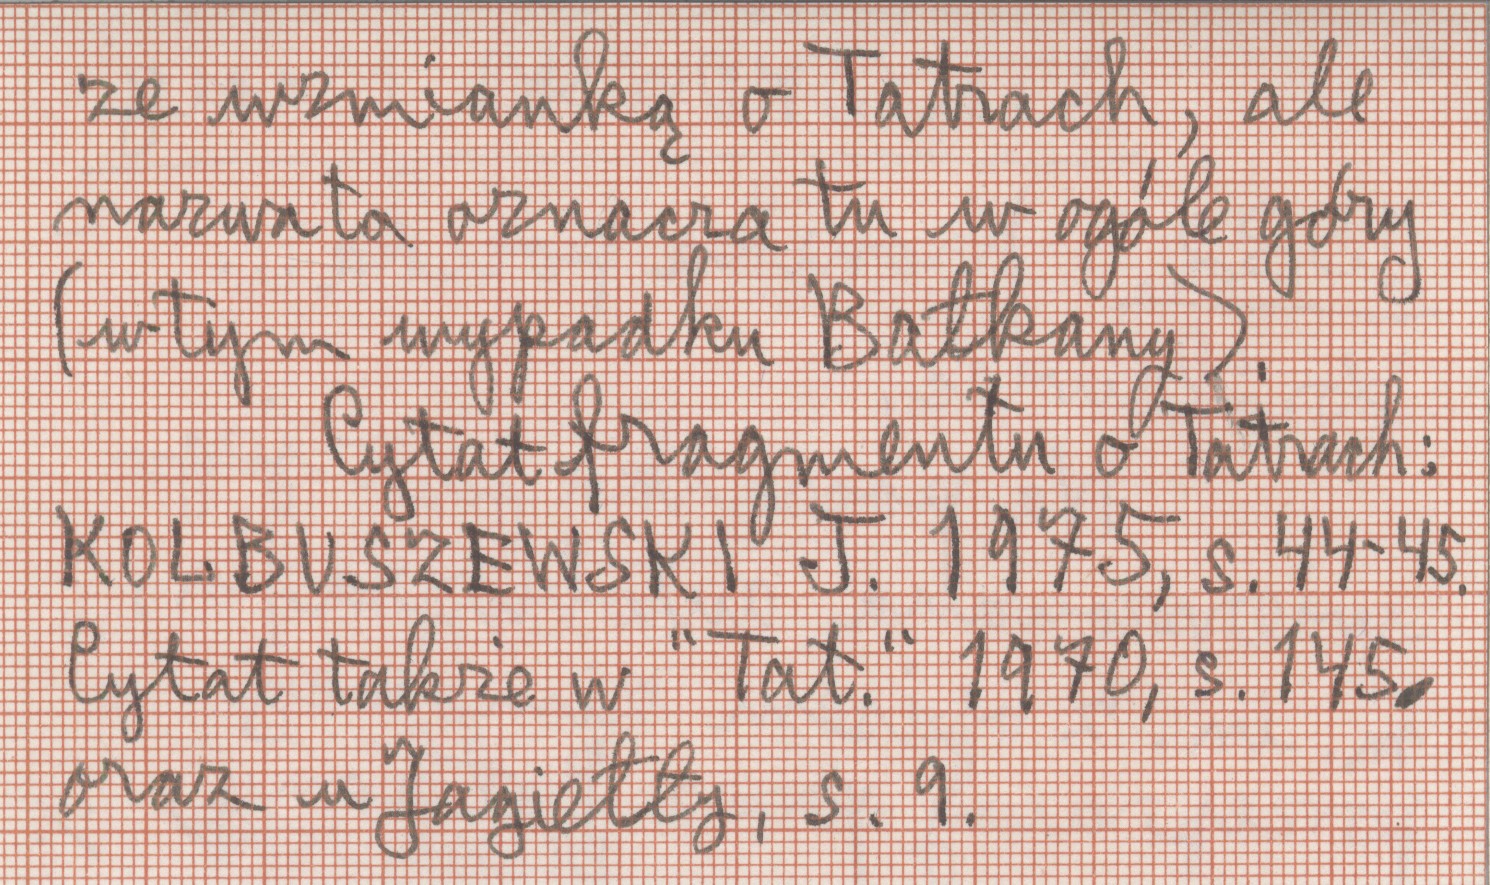 ze wzmianką o Tatrach, ale
nazwa ta oznacza tu w ogóle góry
(w tym wypadku Bałkany).
Cytat fragmentu o Tatrach:
KOLBUSZEWSKI J. 1975, s. 44-45.
Cytat także w "Tat." 1970, s. 145.
oraz u Jagiełły, s. 9.